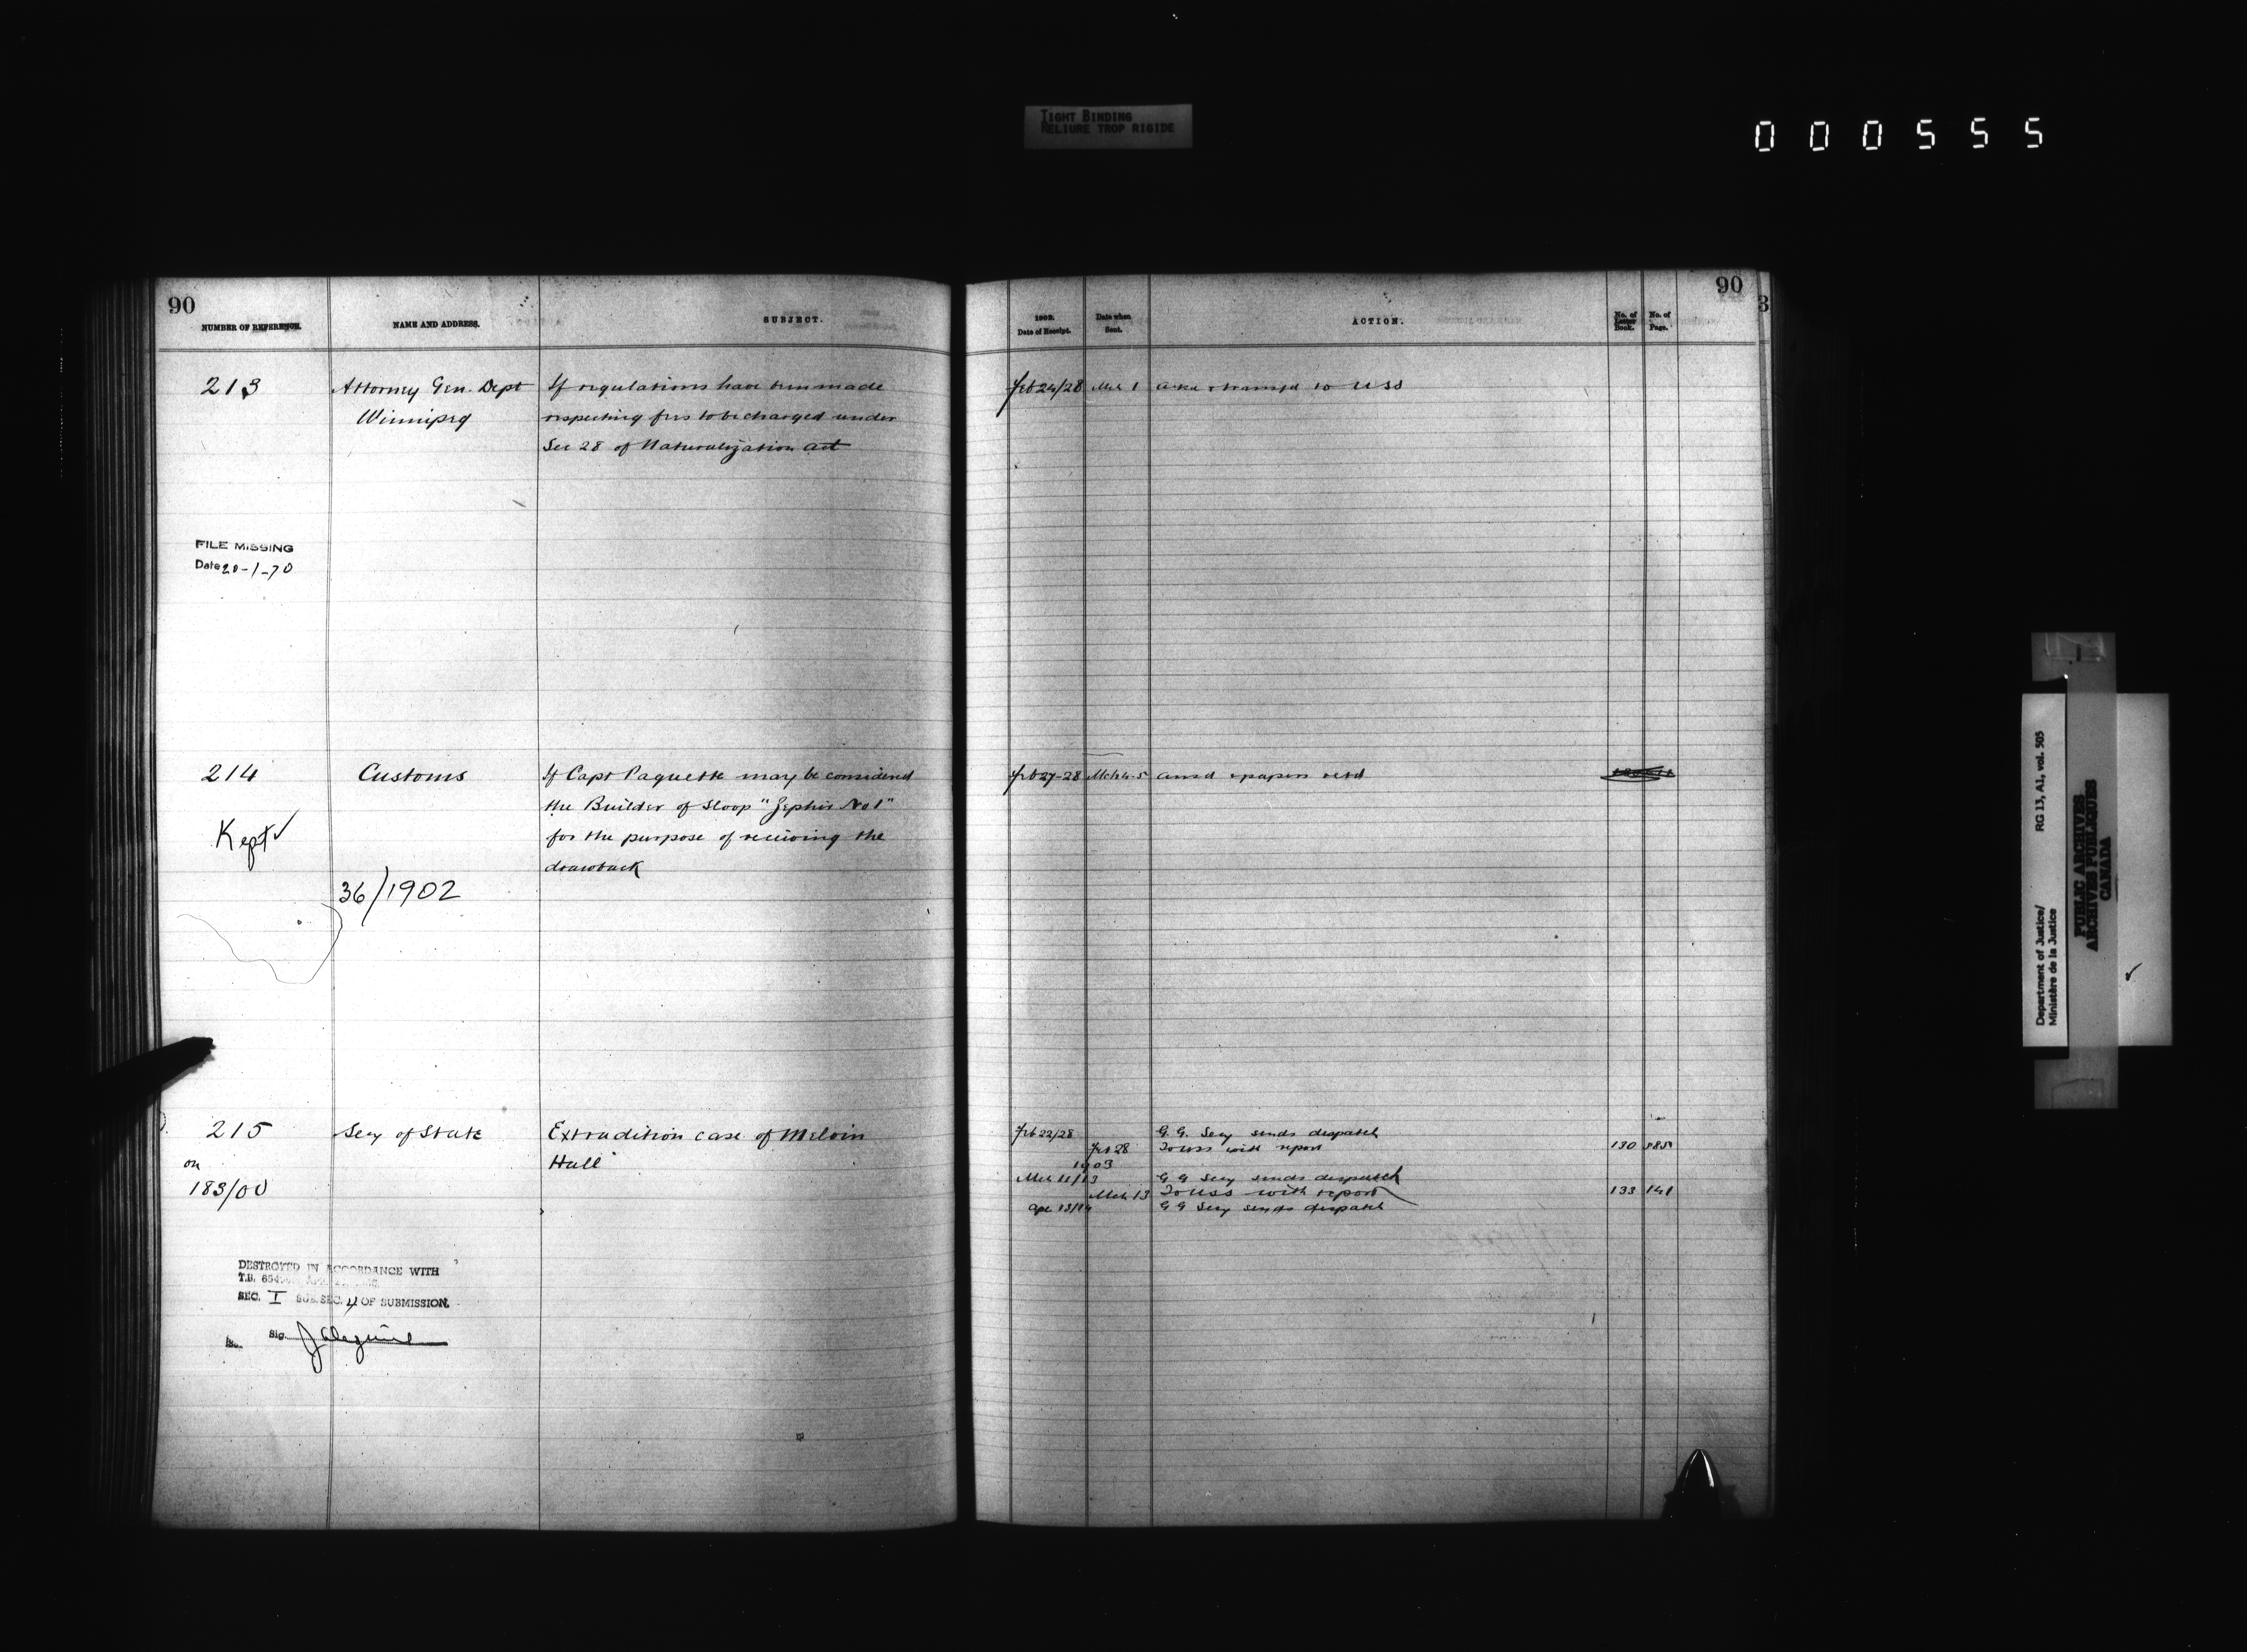 TIGHT BINDING
RELIURE TROP RIGIDE
000555
90
NUMBER OF REFERENCE.
NAME AND ADDRESS.
SUBJECT.
213
Attorney Gen. Dept
Winnipeg
If regulations have been made
respecting fees to be charged under
Sec 28 of Naturalization Act
FILE MISSING
Date 20-1-70
214
Customs
If Capt Paquette may be considered
the Builder of Sloop "Zephir No 1"
for the purpose of receiving the
drawback
Kept ✓
36/1902
215
Secy of State
Extradition case of Melvin
Hall
on
183/00
DESTROYED IN ACCORDANCE WITH
T.B.
SEC. I SUB.SEC. 4 OF SUBMISSION.
Sig.
90
3
1902.
Date of Receipt.
Date when
Sent.
ACTION.
No. of
Letter
Book.
No. of
Page.
Feb 24/28 Mch 1 ackd & transfd to USS
Feb 27-28 Mch 4-5 ansd & papers retd
Feb 22/28 G. G. Secy sends despatch
Feb 28 To USS with report 130 585
1903
Mch 11/13 G G Secy sends despatch
Mch 13 To USS with report 133 141
Apl 13/14 G G Secy sends despatch
Department of Justice/
Ministère de la Justice
RG 13, A1, vol. 505
PUBLIC ARCHIVES
ARCHIVES PUBLIQUES
CANADA